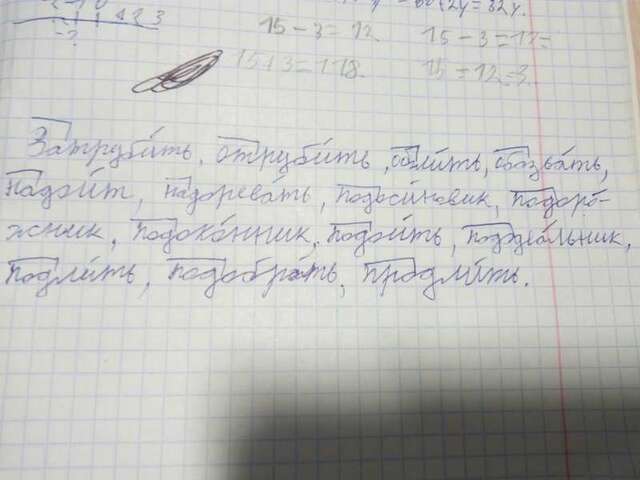 15 - 3 = 12   15 - 3 = 12 =
15 + 3 = 118.   15 = 12 - 3.
Затруби́ть, отруби́ть, обли́ть, обозва́ть,
надои́т, надорева́ть, подоси́новик, подоро́-
жник, подоко́нник, подои́ть, пододея́льник,
подли́ть, подобра́ть, продли́ть.